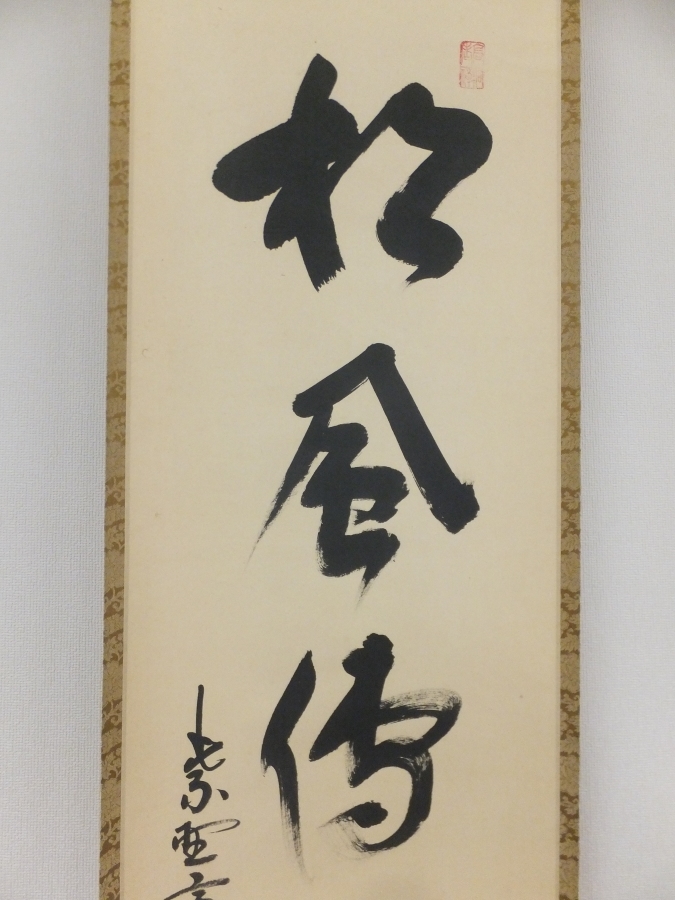 松風傳
紫野